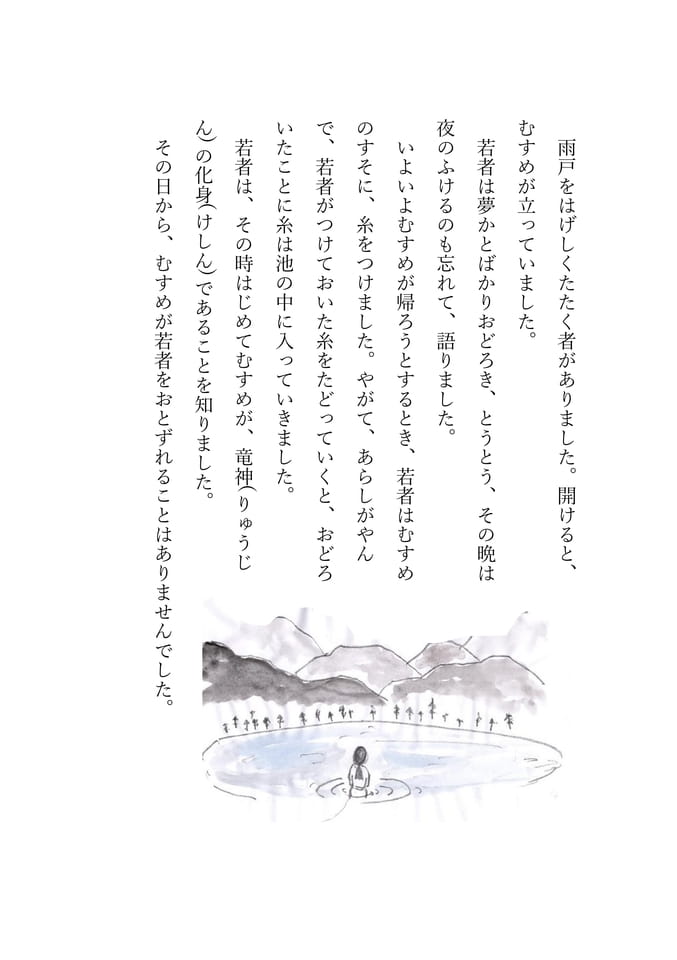 雨戸をはげしくたたく者がありました。開けると、
むすめが立っていました。
若者は夢かとばかりおどろき、とうとう、その晩は
夜のふけるのも忘れて、語りました。
いよいよむすめが帰ろうとするとき、若者はむすめ
のすそに、糸をつけました。やがて、あらしがやん
で、若者がつけておいた糸をたどっていくと、おどろ
いたことに糸は池の中に入っていきました。
若者は、その時はじめてむすめが、竜神(りゅうじ
ん)の化身(けしん)であることを知りました。
その日から、むすめが若者をおとずれることはありませんでした。